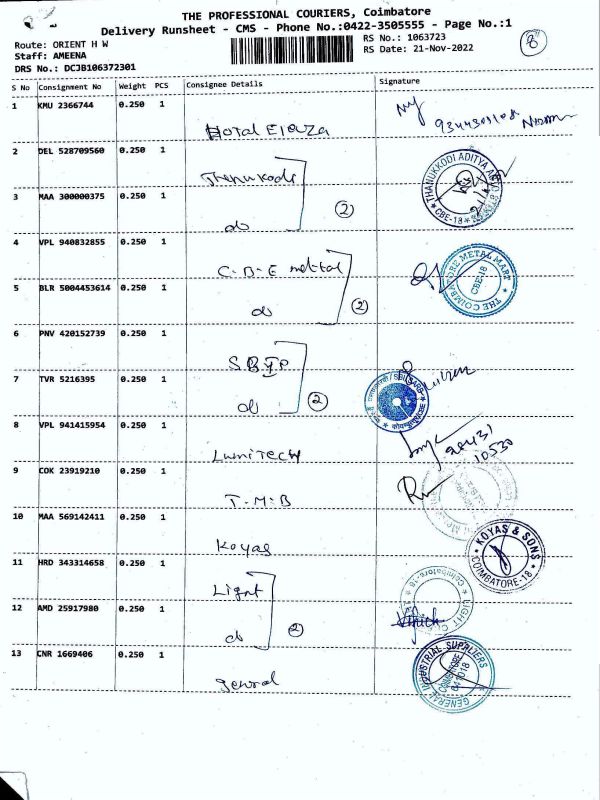 THE PROFESSIONAL COURIERS, Coimbatore
Delivery Runsheet - CMS - Phone No.:0422-3505555 - Page No.:1
Route: ORIENT H W
RS No.: 1063723
8
Staff: AMEENA
RS Date: 21-Nov-2022
DRS No.: DCJB106372301
S No Consignment No Weight PCS Consignee Details Signature
1 KMU 2366744 0.250 1
9344301108
Hotal
2 DEL 528709560 0.250 1
Thanukodi
THANUKKODI ADITYA
CBE-18
3 MAA 300000375 0.250 1
do
2
4 VPL 940832855 0.250 1
C.B.E mettal
THE COIMBATORE METAL MART
CBE-18
5 BLR 5004453614 0.250 1
do
2
6 PNV 420152739 0.250 1
7 TVR 5216395 0.250 1
do
2
8 VPL 941415954 0.250 1
98431
10530
LumiTech
9 COK 23919210 0.250 1
T.M.B
10 MAA 569142411 0.250 1
Koyas
KOYAS & SONS
COIMBATORE-18
11 HRD 343314658 0.250 1
Light
Coimbatore-18
LIGHT
12 AMD 25917980 0.250 1
do
2
13 CNR 1669406 0.250 1
genral
GENERAL INDUSTRIAL SUPPLIERS
COIMBATORE
641018